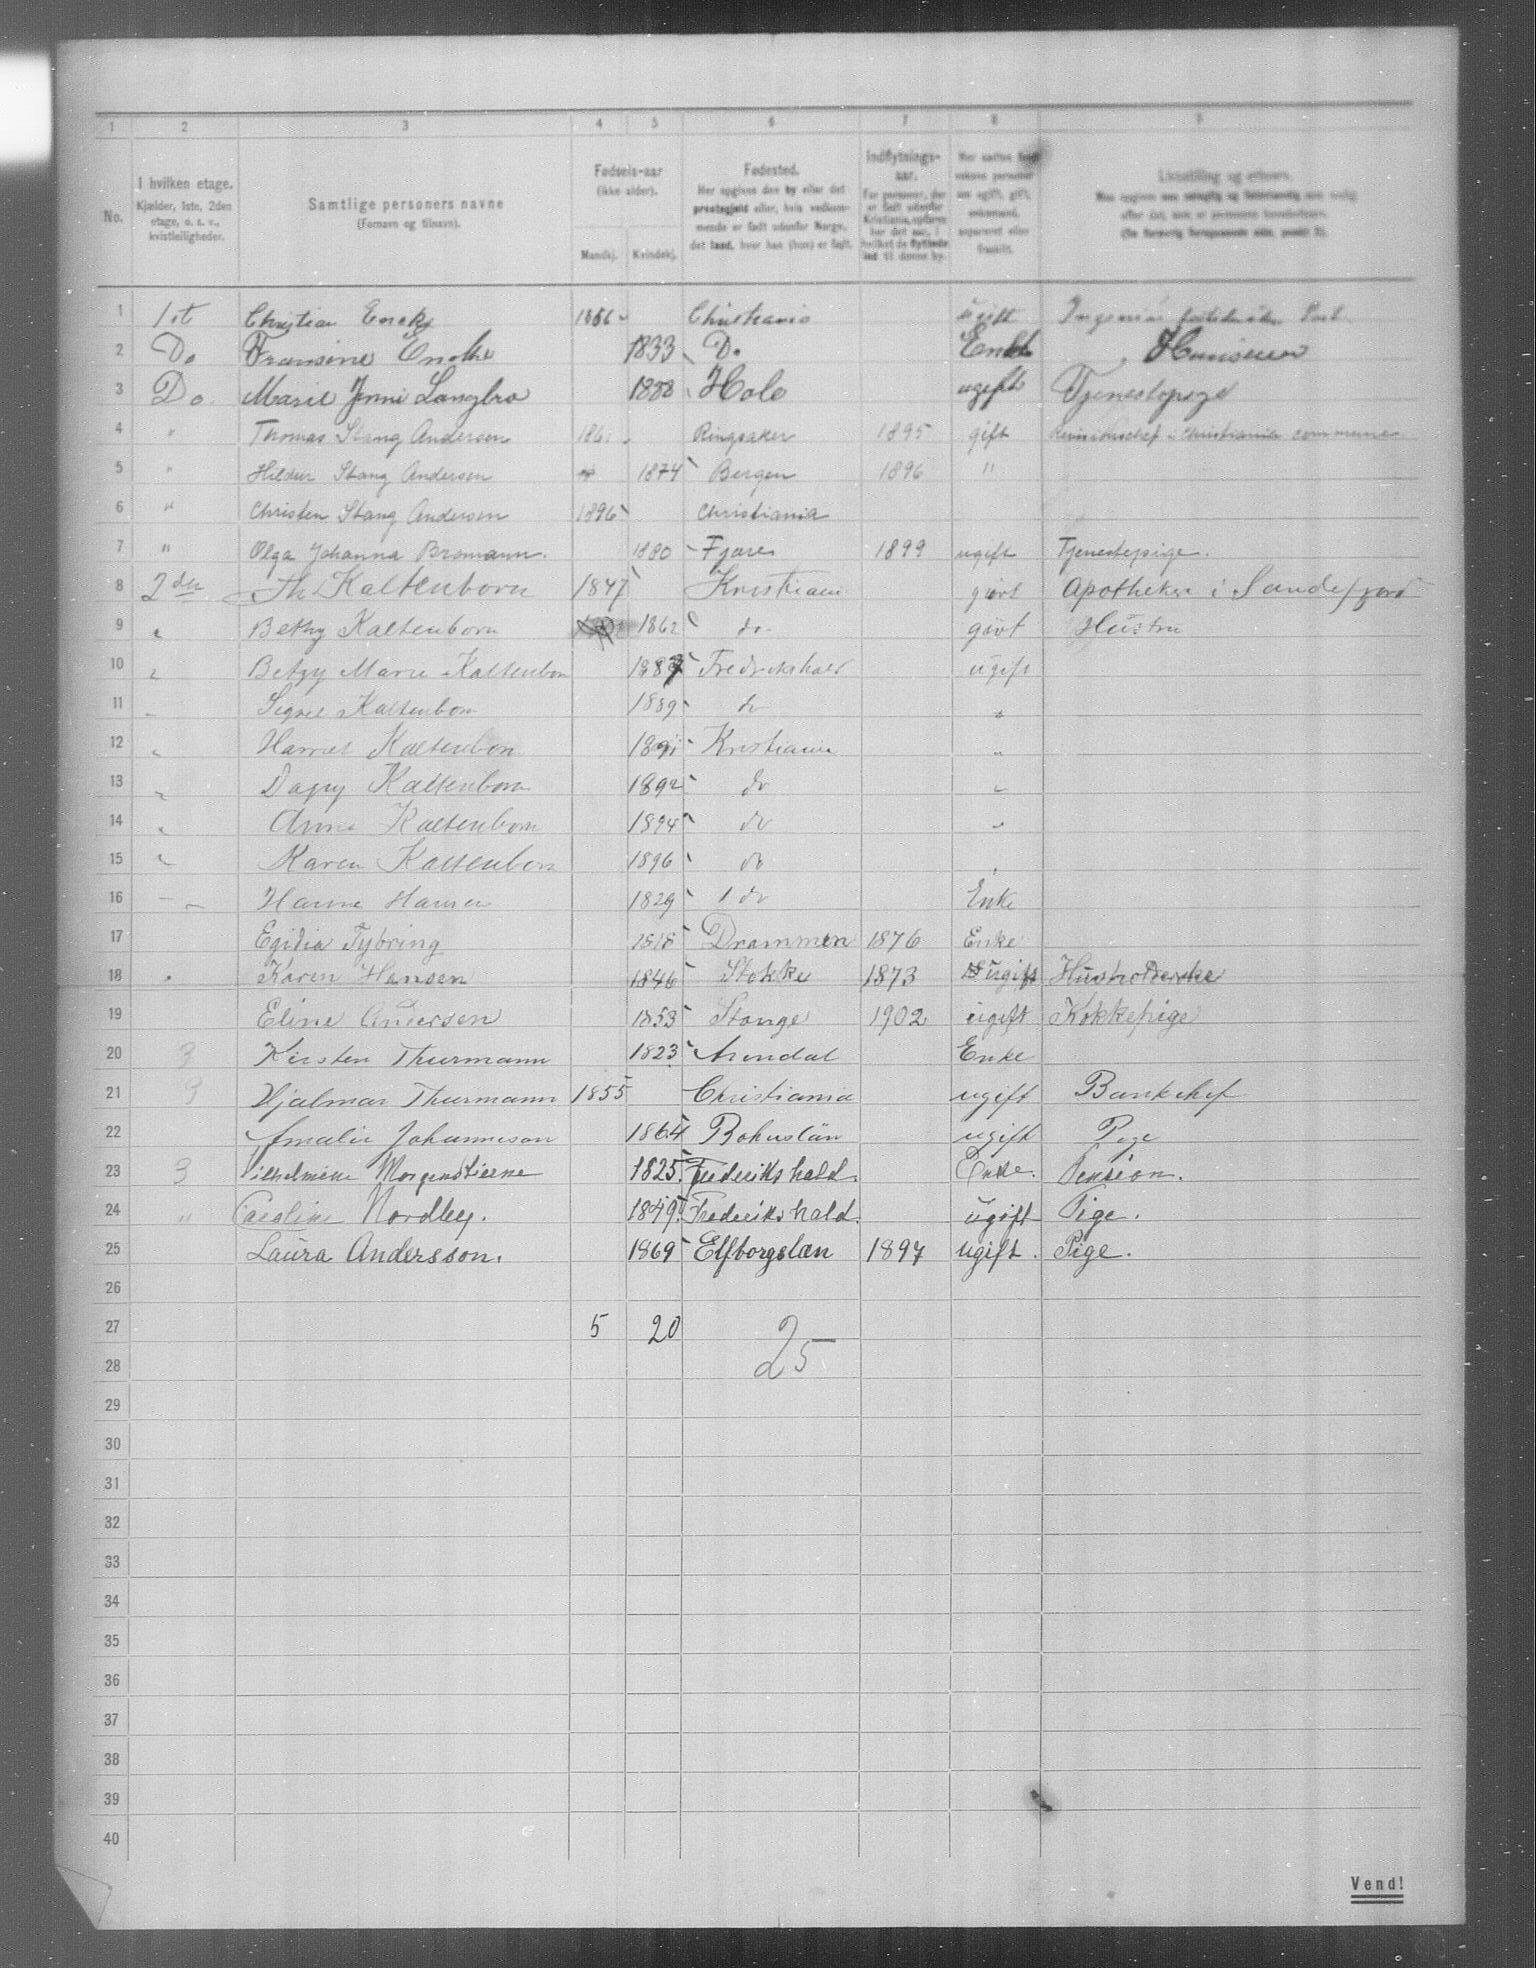 1 2 3 4 5 6 7 8 9
No.
I hvilken etage.
Kjælder, 1ste, 2den
etage, o. s. v.,
kvistleiligheder.
Samtlige personers navne
(Fornavn og tilnavn).
Fødsels-aar
(ikke alder).
Mandkj. Kvindekj.
Fødested.
Her opgives den by eller det
præstegjeld eller, hvis vedkom-
mende er født udenfor Norge,
det land, hvor han (hun) er født.
Indflytnings-
aar.
For personer, der
er født udenfor
Kristiania, opføres
her det aar, i
hvilket de flyttede
ind til denne by.
Livsstilling og erhverv.
1 1st Christian 1866 Christiania ugift
2 Do Fransine Encke 1833 Do Enke
3 Do Marie Jenni Langbro 1888 Hole ugift Tjenestepige
4 " Thomas Stang Andersen Ringsaker 1895 gift Revisionschef i Christiania commune
5 " Hildur Stang Andersen 1874 Bergen 1896 "
6 " Christen Stang Andersen 1896 Christiania
7 " Olga Johanna Bromann. 1880 Fjære 1899 ugift Tjenestepige.
8 2den Th Kaltenborn 1847 Kristiania givt Apotheker i Sandefjord
9 " Bethy Kaltenborn 1862 do givt Hustru
10 " Betzy Marie Kaltenborn 1887 Fredrikshald ugift
11 " Kaltenborn 1889 do "
12 " Harriet Kaltenborn Kristiania "
13 " Dagny Kaltenborn 1892 do "
14 " Anna Kaltenborn 1894 do "
15 " Karen Kaltenborn 1896 do
16 " Hanne Hansen 1829 do Enke
17 Egidia Tybring 1818 Drammen 1876 Enke
18 " Karen Hansen 1846 Stokke 1873 ugift
19 Eline Andersen 1853 Stange 1902 ugift Kokkepige
20 3 Kirsten Thurmann 1823 Arendal Enke
21 3 Hjalmar Thurmann 1855 Christiania ugift Bankchef
22 Amalie Johannesson 1864 Bohuslän ugift Pige
23 3 Vilhelmine Morgenstierne 1825 Frederikshald. Enke. Pension.
24 " Caroline Nordbey. 1849 Frederikshald. ugift Pige.
25 Laura Andersson. 1869 Elfborgslæn 1897 ugift. Pige.
26
27 5 20 25
28
29
30
31
32
33
34
35
36
37
38
39
40
Vend!